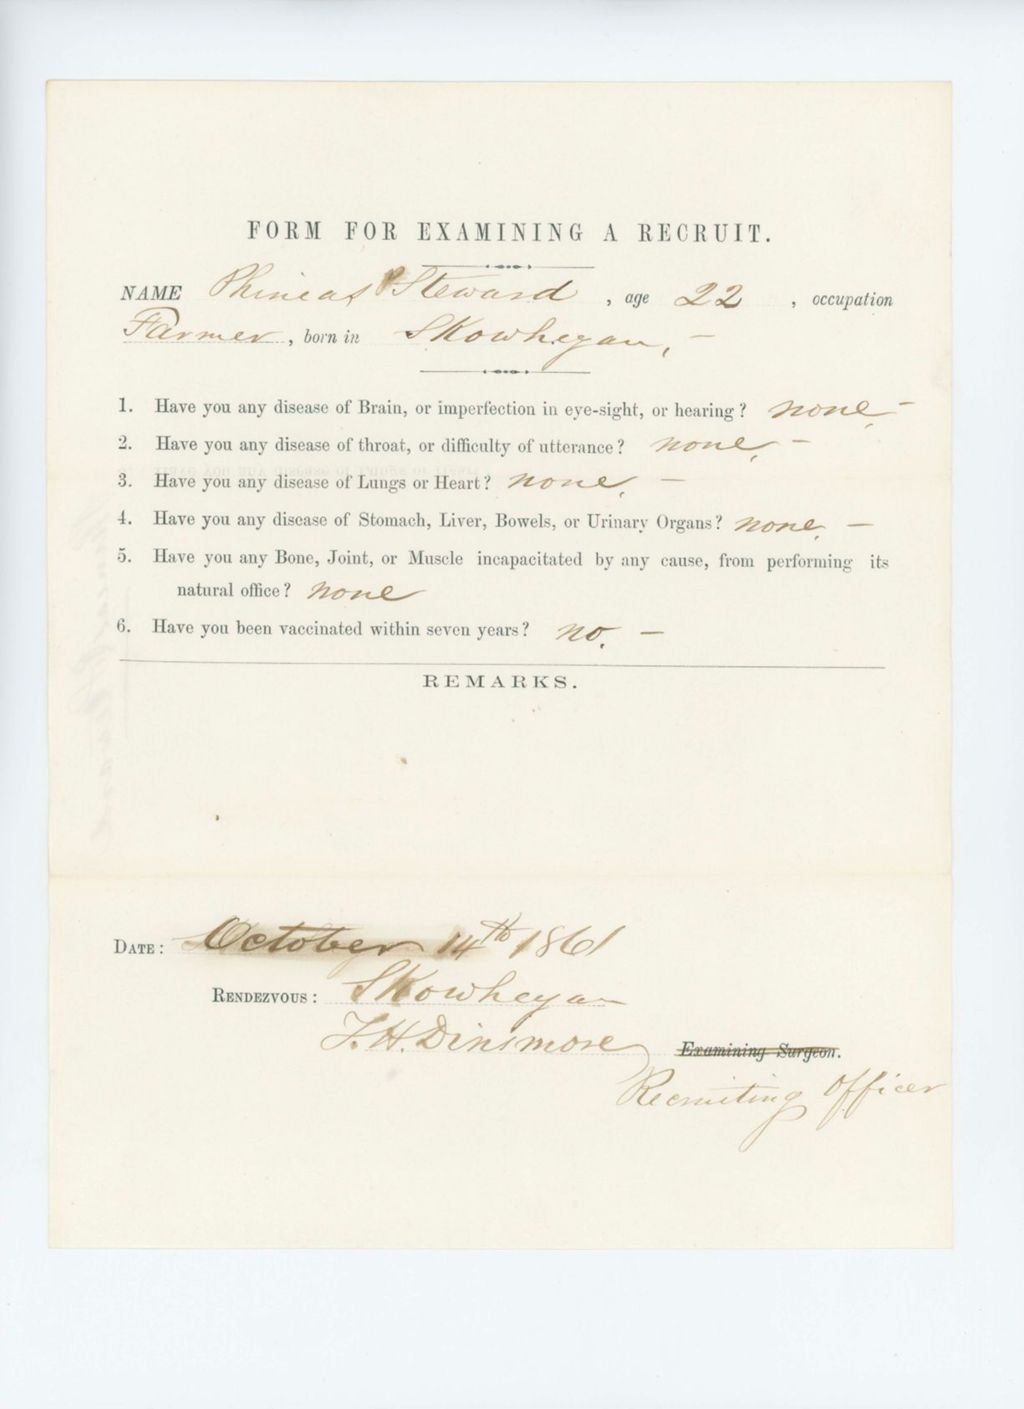 FORM FOR EXAMINING A RECRUIT.
NAME Phineas P Steward , age 22 , occupation
Farmer , born in Skowhegan, –
1. Have you any disease of Brain, or imperfection in eye-sight, or hearing? none. –
2. Have you any disease of throat, or difficulty of utterance? none. –
3. Have you any disease of Lungs or Heart? none. –
4. Have you any disease of Stomach, Liver, Bowels, or Urinary Organs? none. –
5. Have you any Bone, Joint, or Muscle incapacitated by any cause, from performing its
natural office? none
6. Have you been vaccinated within seven years? no. –
REMARKS.
DATE: October 14th 1861
RENDEZVOUS: Skowhegan
F. H. Dinsmore Examining Surgeon.
Recruiting Officer